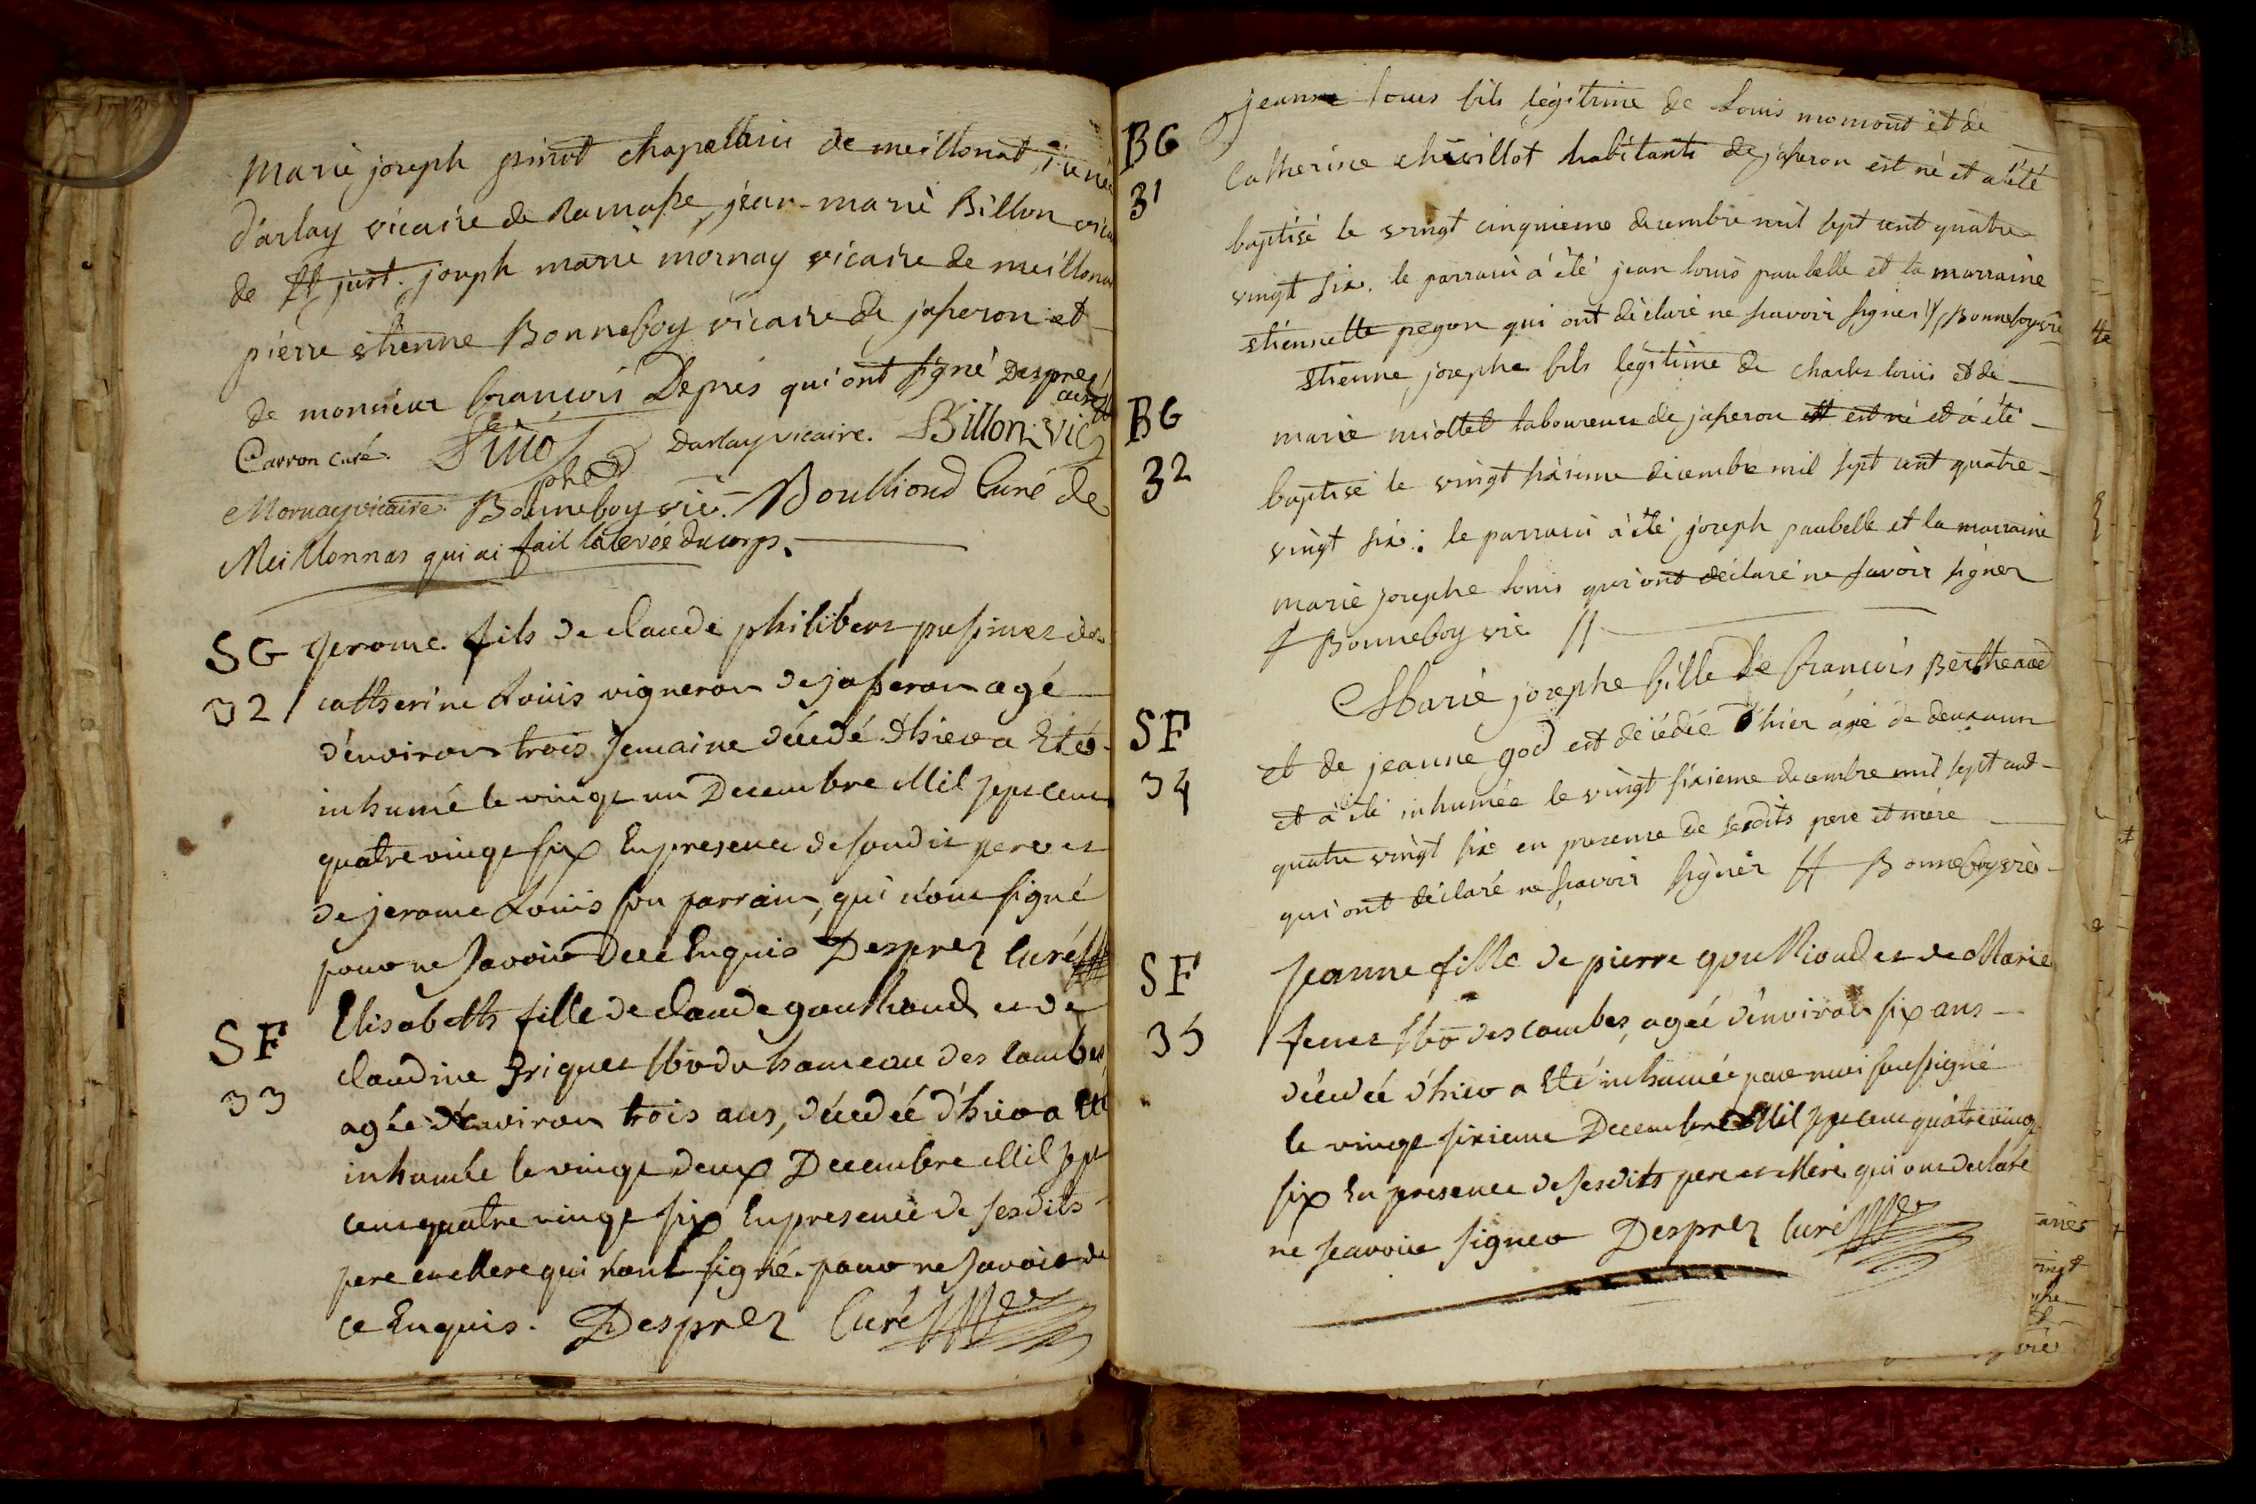 Marie joseph pinot chapellain de meillonat,
Darlay vicaire de Ramasse, jean-marie Billon
de St just. joseph marie mornay vicaire de meillona
pierre etienne Bonneboy vicaire de jaseron et
de monsieur françois Depres qui ont signé Desprez
curé
Carron curé. Pinot Darlay vicaire. Billon vic
Mornay vicaire. Bonneboy vic. Boulliond Curé de
Meillonnas qui ai fait la levée du corps.
SG
32
Jerome fils de claude philibert pusinet de
catherine Louis vigneron de jaseron agé
d'environ trois semaine décedé d'hier a Eté
inhumé le vingt un Decembre Mil sept cent
quatre vingt six En presence de sondit pere et
de jerome Louis son parrain, qui n'ont signé
pour ne savoir de ce Enquis Desprez Curé
SF
33
Elisabeth fille de claude goulliond et de
claudine hameau des combes
agée d'environ trois ans, décedée d'hier a Eté
inhumée le vingt deux Decembre Mil sept
cent quatre vingt six En presence de sesdits
pere et Mere qui n'ont signé pour ne savoir de
ce Enquis. Desprez Curé
BG
31
jean louis fils légitime de Louis momont et de
Catherine chevillot habitants de jaseron est né et a été
baptisé le vingt cinquieme decembre mil sept cent quatre
vingt six. le parrain a été jean louis paubelle et la marraine
etiennette pegon qui ont déclaré ne scavoir signer // Bonneboy vic
BG
32
Etienne josephe fils légitime de charles louis et de
marie miollet laboureur de jaseron est né et a été
baptisé le vingt sixieme decembre mil sept cent quatre
vingt six: le parrain a été joseph paubelle et la marraine
marie josephe louis qui ont déclaré ne savoir signer
Bonneboy vic //
SF
34
Marie josephe fille de françois Bertheaud
et de jeanne god est décédée d'hier agé de deux ans
et a été inhumée le vingt sixieme decembre mil sept cent
quatre vingt six en presence de sesdits pere et mere
qui ont déclaré ne scavoir signer // Bonneboy vic
SF
35
Jeanne fille de pierre goulliond et de Marie
des combes, agée d'environ six ans
décedée d'hier a Eté inhumée par moi soussigné
le vingt sixieme Decembre Mil sept cent quatre vingt
six En presence de sesdits pere et Mere qui ont declaré
ne scavoir signer Desprez Curé